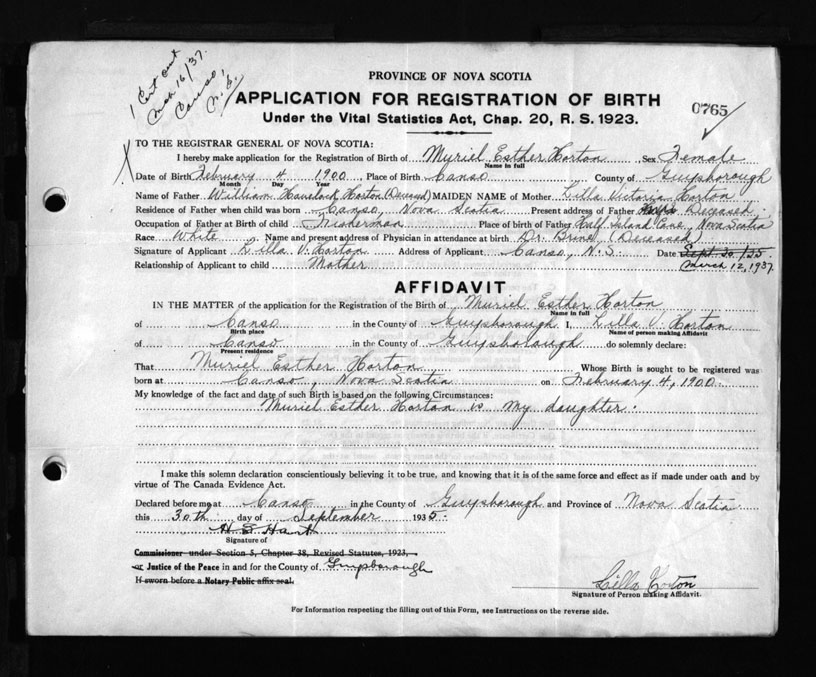 1 Cert sent
Mch 16/37.
Canso,
N.S.
PROVINCE OF NOVA SCOTIA
APPLICATION FOR REGISTRATION OF BIRTH
Under the Vital Statistics Act, Chap. 20, R. S. 1923.
0765
TO THE REGISTRAR GENERAL OF NOVA SCOTIA:
I hereby make application for the Registration of Birth of Muriel Esther Horton Sex Female
Name in full
Date of Birth February 4 1900 Place of Birth Canso County of Guysborough
Month Day Year
Name of Father William Horton (Deceased) MAIDEN NAME of Mother Lilla Victoria Horton
Residence of Father when child was born Canso, Nova Scotia Present address of Father Deceased
Occupation of Father at Birth of child Fisherman Place of birth of Father Half Island Cove, Nova Scotia
Race White Name and present address of Physician in attendance at birth Dr. (Deceased)
Signature of Applicant Lilla V. Horton Address of Applicant Canso, N.S. Date Sept 30/35.
Relationship of Applicant to child Mother March 12, 1937
AFFIDAVIT
IN THE MATTER of the application for the Registration of the Birth of Muriel Esther Horton
Name in full
of Canso in the County of Guysborough I, Lilla V Horton
Birth place Name of person making Affidavit
of Canso in the County of Guysborough do solemnly declare:
Present residence
That Muriel Esther Horton Whose Birth is sought to be registered was
born at Canso, Nova Scotia on February 4, 1900.
My knowledge of the fact and date of such Birth is based on the following Circumstances:
Muriel Esther Horton is my daughter.
I make this solemn declaration conscientiously believing it to be true, and knowing that it is of the same force and effect as if made under oath and by
virtue of The Canada Evidence Act.
Declared before me at Canso in the County of Guysborough and Province of Nova Scotia
this 30th day of September 1935.
H S Hart
Signature of
Commissioner under Section 5, Chapter 38, Revised Statutes, 1923,
or Justice of the Peace in and for the County of Guysborough
If sworn before a Notary Public affix seal.
Lilla Horton
Signature of Person making Affidavit.
For Information respecting the filling out of this Form, see Instructions on the reverse side.